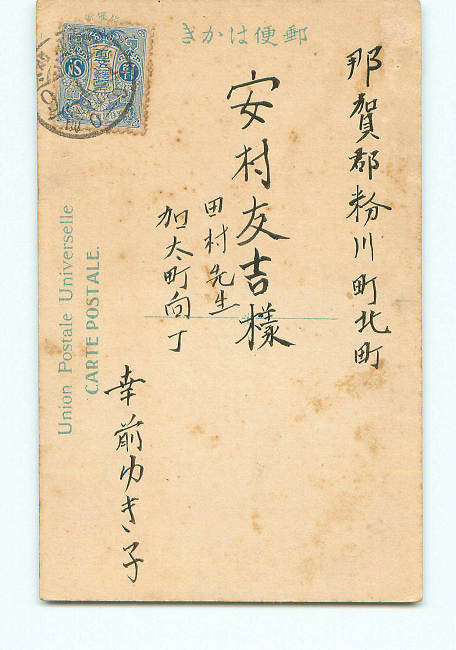 きかは便郵
那賀郡粉川町北町
安村友吉様
田村先生
加太町向丁
幸前ゆきゑ子
Union Postale Universelle
CARTE POSTALE.